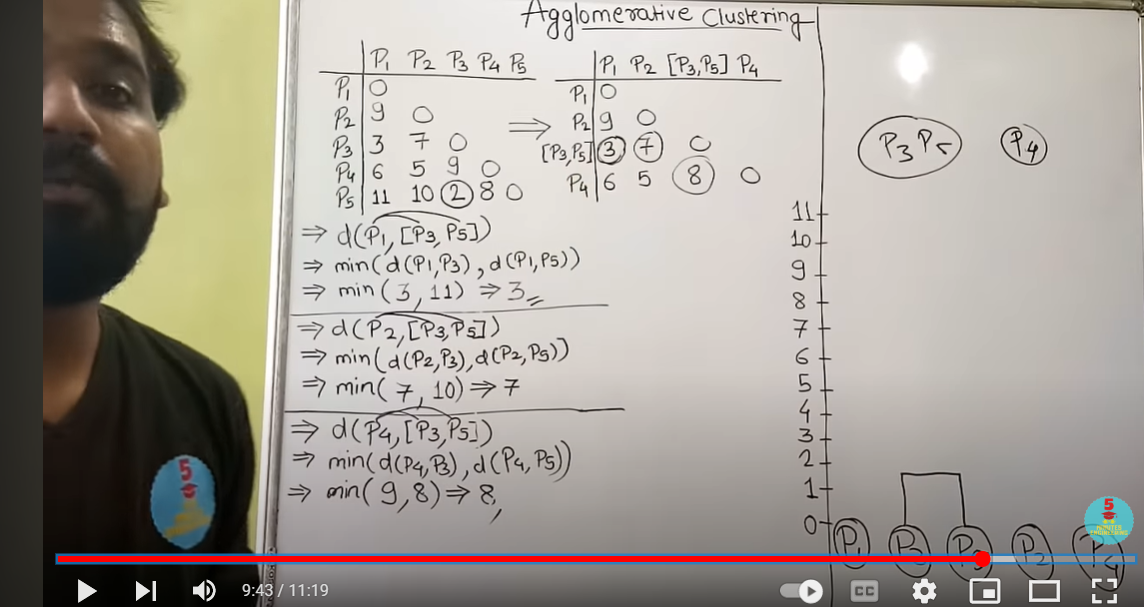 Agglomerative Clustering
P1 P2 P3 P4 P5
P1 0
P2 9 0
P3 3 7 0
P4 6 5 9 0
P5 11 10 2 8 0
⇒
P1 P2 [P3,P5] P4
P1 0
P2 9 0
[P3,P5] 3 7 0
P4 6 5 8 0
⇒ d(P1,[P3,P5])
⇒ min(d(P1,P3),d(P1,P5))
⇒ min(3,11) ⇒ 3
⇒ d(P2,[P3,P5])
⇒ min(d(P2,P3),d(P2,P5))
⇒ min(7,10) ⇒ 7
⇒ d(P4,[P3,P5])
⇒ min(d(P4,P3),d(P4,P5))
⇒ min(9,8) ⇒ 8,
P3 P5 P4
11
10
9
8
7
6
5
4
3
2
1
0
P1 P3 P2 P4
5
5
9:43 / 11:19
CC